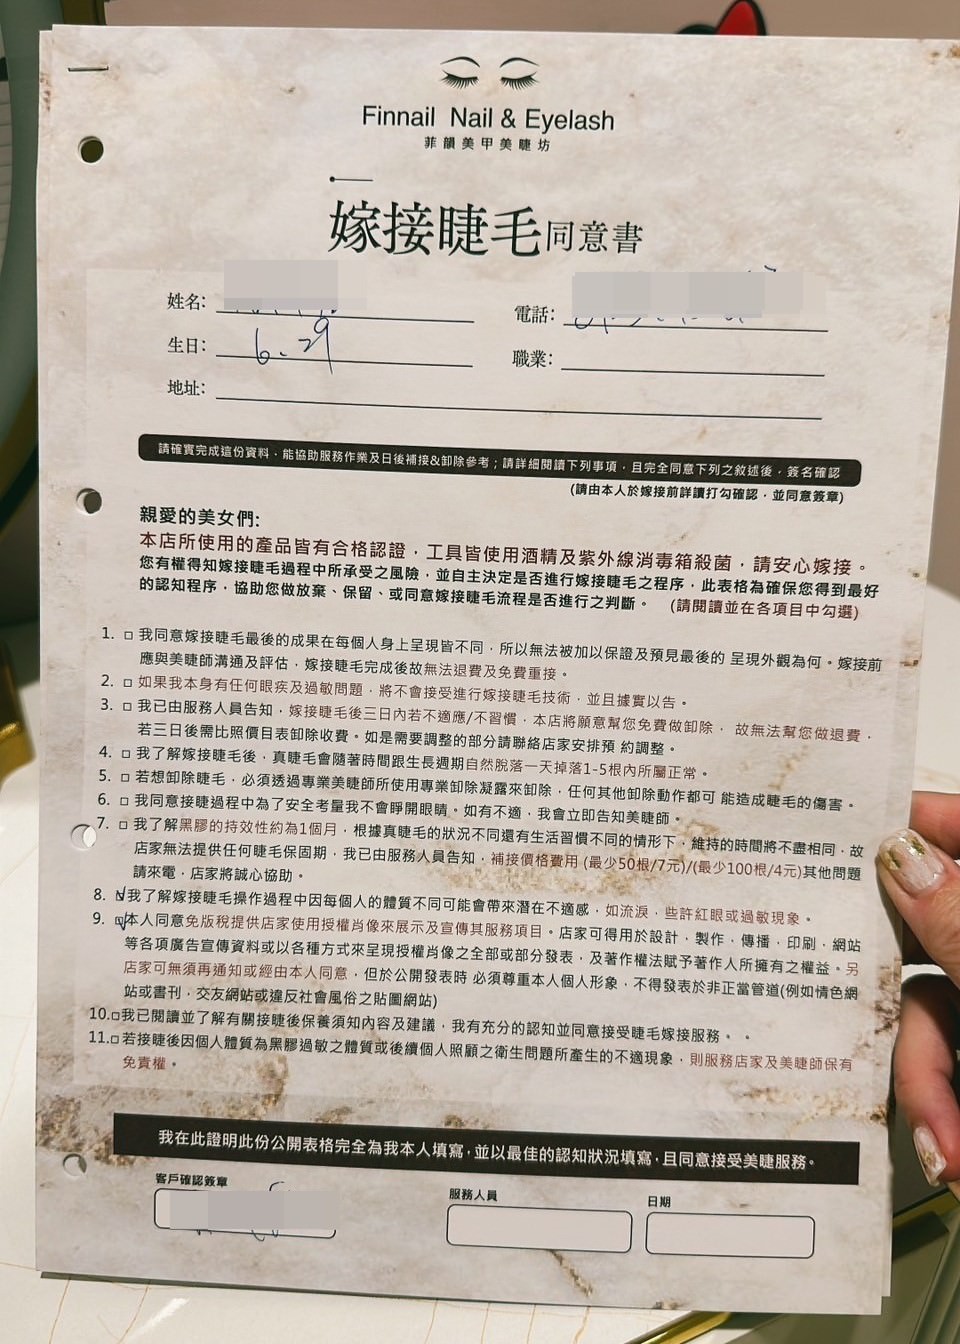 Finnail Nail & Eyelash
菲韻美甲美睫坊
嫁接睫毛同意書
姓名:
電話:
生日: 6.29
職業:
地址:
請確實完成這份資料，能協助服務作業及日後補接&卸除參考；請詳細閱讀下列事項，且完全同意下列之敘述後，簽名確認
(請由本人於嫁接前詳讀打勾確認，並同意簽章)
親愛的美女們:
本店所使用的產品皆有合格認證，工具皆使用酒精及紫外線消毒箱殺菌，請安心嫁接。
您有權得知嫁接睫毛過程中所承受之風險，並自主決定是否進行嫁接睫毛之程序，此表格為確保您得到最好
的認知程序，協助您做放棄、保留、或同意嫁接睫毛流程是否進行之判斷。 (請閱讀並在各項目中勾選)
1. □ 我同意嫁接睫毛最後的成果在每個人身上呈現皆不同，所以無法被加以保證及預見最後的 呈現外觀為何。嫁接前
應與美睫師溝通及評估，嫁接睫毛完成後故無法退費及免費重接。
2. □ 如果我本身有任何眼疾及過敏問題，將不會接受進行嫁接睫毛技術，並且據實以告。
3. □ 我已由服務人員告知，嫁接睫毛後三日內若不適應/不習慣，本店將願意幫您免費做卸除， 故無法幫您做退費，
若三日後需比照價目表卸除收費。如是需要調整的部分請聯絡店家安排預 約調整。
4. □ 我了解嫁接睫毛後，真睫毛會隨著時間跟生長週期自然脫落一天掉落1-5根內所屬正常。
5. □ 若想卸除睫毛，必須透過專業美睫師所使用專業卸除凝露來卸除，任何其他卸除動作都可 能造成睫毛的傷害。
6. □ 我同意接睫過程中為了安全考量我不會睜開眼睛。如有不適，我會立即告知美睫師。
7. □ 我了解黑膠的持效性約為1個月，根據真睫毛的狀況不同還有生活習慣不同的情形下，維持的時間將不盡相同，故
店家無法提供任何睫毛保固期，我已由服務人員告知，補接價格費用 (最少50根/7元)/(最少100根/4元)其他問題
請來電，店家將誠心協助。
8. ☑我了解嫁接睫毛操作過程中因每個人的體質不同可能會帶來潛在不適感，如流淚，些許紅眼或過敏現象。
9. ☑本人同意免版稅提供店家使用授權肖像來展示及宣傳其服務項目。店家可得用於設計，製作，傳播，印刷，網站
等各項廣告宣傳資料或以各種方式來呈現授權肖像之全部或部分發表，及著作權法賦予著作人所擁有之權益。另
店家可無須再通知或經由本人同意，但於公開發表時 必須尊重本人個人形象，不得發表於非正當管道(例如情色網
站或書刊，交友網站或違反社會風俗之貼圖網站)
10.□我已閱讀並了解有關接睫後保養須知內容及建議，我有充分的認知並同意接受睫毛嫁接服務。。
11.□若接睫後因個人體質為黑膠過敏之體質或後續個人照顧之衛生問題所產生的不適現象，則服務店家及美睫師保有
免責權。
我在此證明此份公開表格完全為我本人填寫，並以最佳的認知狀況填寫，且同意接受美睫服務。
客戶確認簽章
服務人員
日期